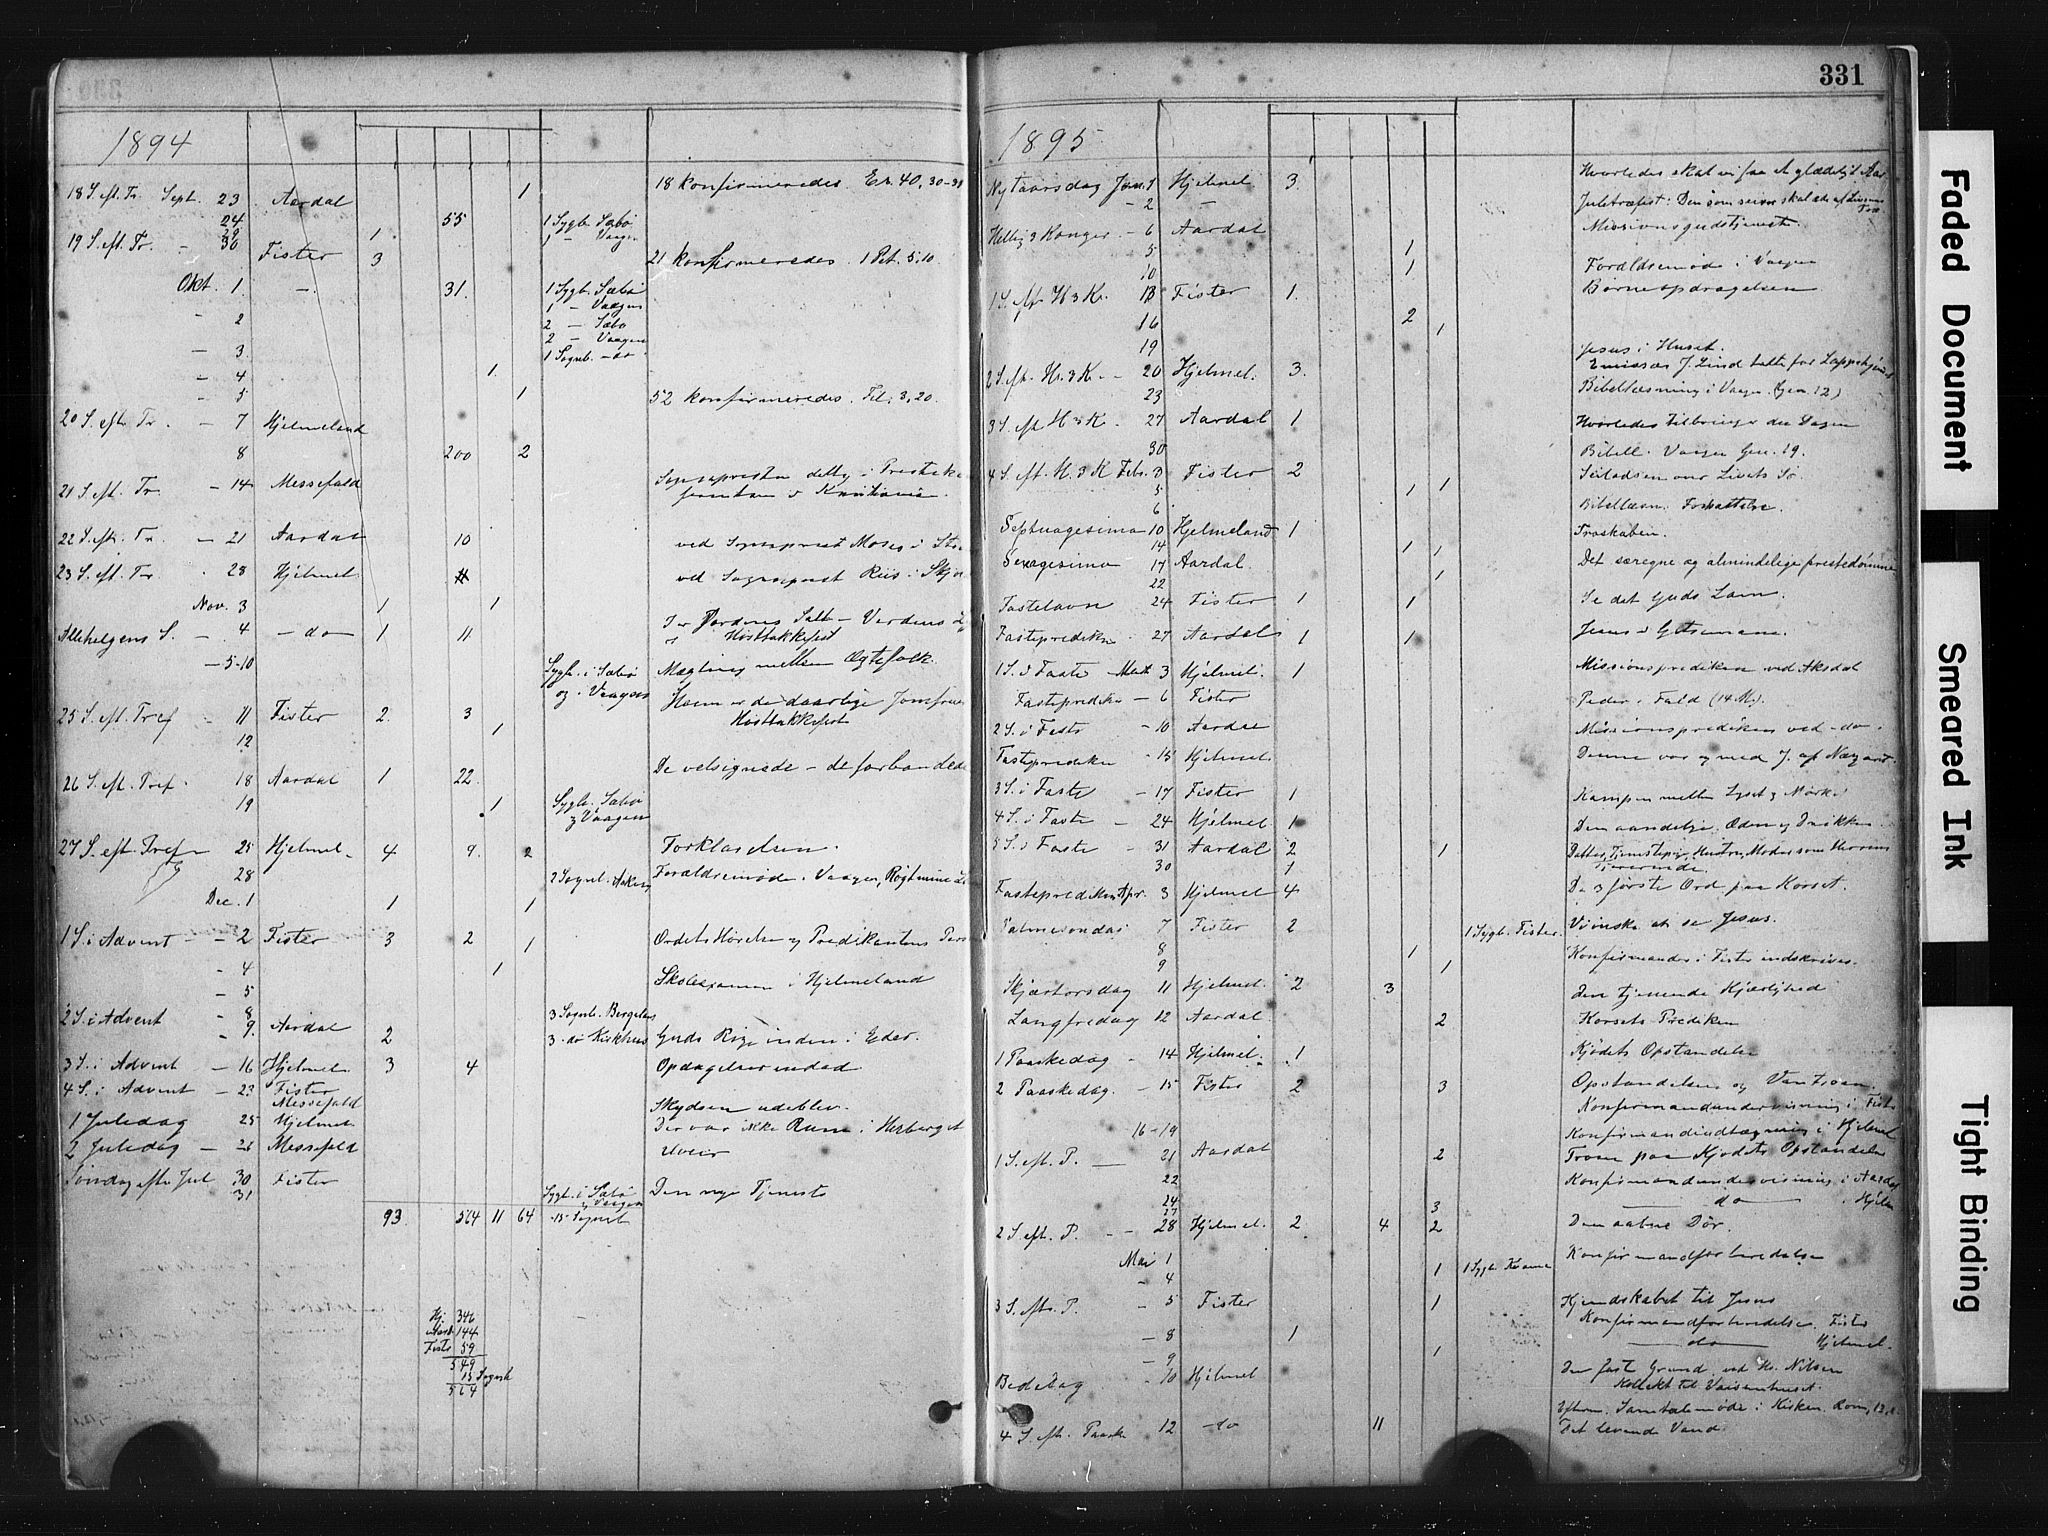 331
1894
18 S. eft. Tr. Sept. 23 Aardal 1 18 konfirmeredes. Es. 40, 30-31
24 55 1 Sygb. Sæbø
29 1 1 — Vaagen
19 S. eft. Tr. - 30 Fister 3 21 konfirmeredes. 1 Pet. 5.10.
Okt. 1 - 31. 1 Sygb. Sæbø
1 — Vaagen
- 2 2 — Sæbø
2 — Vaagen
- 3 1 Sognb. - do
- 4 1
- 5 1
20 S. eftr. Tr. - 7 Hjelmeland 52 konfirmeredes. Fil. 3,20.
8 200 2
21 S. eft. Tr. - 14 Messefald Sognepresten deltog i
22 S. eftr. Tr. - 21 Aardal 10 ved Sognepræst Moses i
23 S. eft. Tr. 28 Hjelmel. ved Sognepræst Riis i
Nov. 3 1 1
Allehelgens S. - 4 - do 1 11 I er Jordens Salt - Verdens
Høsttakkefest
- 5-10 Sygb. i Sæbø og i Vaagen Mægling mellem Ægtefolk.
25 S. eft. Tref - 11 Fister 2. 3 Hvem er de daarlige Jomfruer
Høsttakkefest
12 1
26 S. eft. Tref. 18 Aardal 1 22. De velsignede - de forbandede
19 1 Sygb. Sæbø
& Vaagen
27 S. eft. Tref - 25 Hjelmel. 4 9. 2 Forklarelsen.
28 2 Sognb. Forældremøde i Vaagen,
Dec. 1 1 1
1 S. i Advent - 2 Fister 3 2 1 Ordets Hørelse og Predikantens
- 4 1 Skoleexamen i Hjelmeland
- 5
- 8 3 Sognb.
2 S. i Advent - 9. Aardal 2 3 - do Kirkhus Guds Rige inden i Eder.
3 S. i Advent - 16 Hjelmel 3 4 Opdagelser indad
4 S. i Advent - 23 Fister
Messefald Skydsen udeblev.
1 Juledag 25 Hjelmel. Der var ikke Rum i Herberget
2 Juledag - 26 Messefald Uveir
Søndag efter Jul 30 Fister Den nye Tjeneste
31 Sygb. i Sæbø
& Vaagen
93. 564 11 64 15 Sognb
Hj. 346
Aard 144
Fister 59
549
15 Sognb
564
1895
Nytaarsdag Jan. 1 Hjelmel 3. Hvorledes skal vi faa et glædeligt Aar
- 2 - Juletræfest:
Hellig 3 Konger - 6 Aardal Missionsgudstjeneste.
5 1
10 1 Forældremøde i Vaagen
1 S. eft. H 3 K. 13 Fister 1. Børneopdragelsen
16 2
19 1
2 S. eft. H. 3 K. - 20 Hjelmel. 3. Jesus i Huset.
Emissær J. Lind talte for
23 Bibellæsning i Vaagen (Gen. 12)
3 S. eft H 3 K. 27 Aardal 1 Hvorledes tilbringer du Dagen
30 Bibell. Vaagen Gen. 19.
4 S. eft. H. 3 K Febr. 3 Fister 2 Seiladsen over Livets Sø.
5 1 1
6 Bibellæsn. Forsættelse.
Septuagesima 10 Hjelmeland 1 Troskaben.
14 1 1
Sexagesima 17 Aardal. Det særegne og almindelige prestedømme
22 1
Fastelavn 24 Fister 1 1 Se det Guds Lam.
Fasteprediken 27 Aardal 1 1 Jesus i Getsemane.
1 S. i Faste Marts 3 Hjelmel. 1 Missionsprediken ved Aksdal
Fasteprediken - 6 Fister Peders Fald (14 M).
2 S. i Faste - 10 Aardal Missionsprediken ved - do -
Fasteprediken - 15 Hjelmel. Denne var og med J. af Nazaret.
3 S. i Faste - 17 Fister 1 Kampen mellem Lyset & Mørket
4 S. i Faste - 24 Hjelmel. 1 Den aandelige Æden og Drikken
5 S. i Faste - 31 Aardal 2 1 Datter, Tjenestepige, Hustru, Moder som Herrens
Tjenerinde.
30 1
Fasteprediken Apr. 3 Hjelmel 4 De 3 første Ord paa Korset.
Palmesøndag 7 Fister 2 1 Sygb. Fister. Vi ønske at se Jesus.
8 1 Konfirmander i Fister indskrives.
9 1
Skjærtorsdag 11 Hjelmel. 2 3 Den tjenende Kjærlighed
Langfredag 12 Aardal 2 Korsets Prediken
1 Paaskedag - 14 Hjelmel. 1 Kjødets Opstandelse
2 Paaskedag. - 15 Fister 2 3 Opstandelsen og Vantroen.
Konfirmandundervisning i Fister
16-19 Konfirmandindtegning i Hjelmel
1 S. eft. P. 21 Aardal 2 Troen paa Kjødets Opstandelse
22 Konfirmandundervisning i Aardal
24 — do — Hjelm
27 3
2 S. eft. P. - 28 Hjelmel. 2 4 2 Den aabne Dør.
Mai 1 Konfirmandforberedelse
- 4 1 1 Sygb.
3 S. eftr. P. - 5 Fister 1 Kjendskabet til Jesus
- 8 1 Konfirmandforberedelse. Fister
- 9 1 — do — Hjelmel.
Bededag - 10 Hjelmel Den fast Grund ved H. Nilsen
Kollekt til Vaisenhuset.
Eftern. Samtalemøde i Kirken. Rom,
4 S. eftr. Paaske 12 - do 11 Det levende Vand
Faded Document
Smeared Ink
Tight Binding